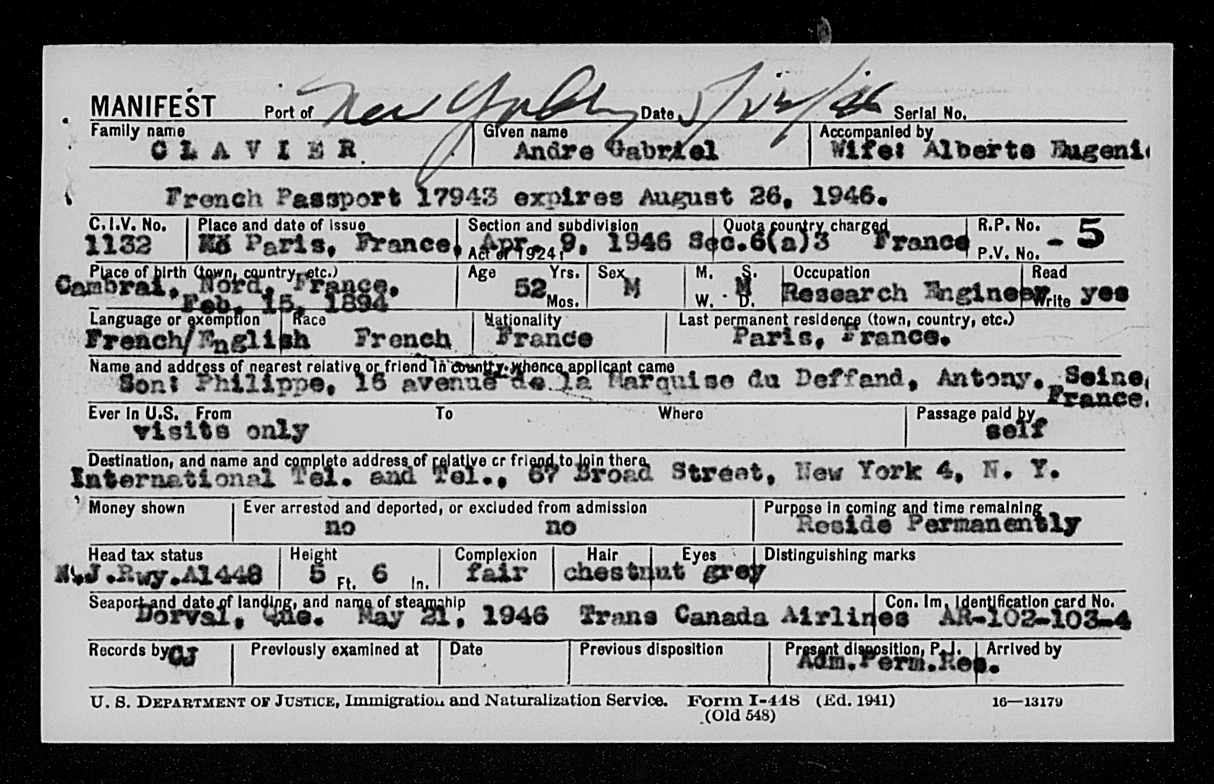 MANIFEST Port of New York Date Serial No.
Family name Given name Accompanied by
C L A V I E R Andre Gabriel Wife: Alberte Eugeni
French Passport 17943 expires August 26, 1946.
C.I.V. No. Place and date of issue Section and subdivision Quota country charged R.P. No. - 5
1132 Paris, France, Apr. 9, 1946 Sec.6(a)3 France
Act of 1924: P.V. No.
Place of birth (town, country, etc.) Age Yrs. Sex M. S. Occupation Read
Cambrai, Nord, France. 52 M M Research Engineer yes
Feb. 15, 1894 Mos. W. D. Write
Language or exemption Race Nationality Last permanent residence (town, country, etc.)
French/English French France Paris, France.
Name and address of nearest relative or friend in country whence applicant came
Son: Philippe, 16 avenue de la Marquise du Deffand, Antony, Seine,
France.
Ever in U.S. From To Where Passage paid by
visits only self
Destination, and name and complete address of relative or friend to join there
International Tel. and Tel., 67 Broad Street, New York 4, N. Y.
Money shown Ever arrested and deported, or excluded from admission Purpose in coming and time remaining
no no Reside Permanently
Head tax status Height Complexion Hair Eyes Distinguishing marks
N.J.Rwy.A1448 5 Ft. 6 In. fair chestnut grey
Seaport and date of landing, and name of steamship Con. Im. Identification card No.
Dorval, Que. May 21, 1946 Trans Canada Airlines AR-102-103-4
Records by CJ Previously examined at Date Previous disposition Present disposition, P.I. Arrived by
Adm.Perm.Res.
U. S. DEPARTMENT OF JUSTICE, Immigration and Naturalization Service. Form I-448 (Ed. 1941) 16—13179
(Old 548)